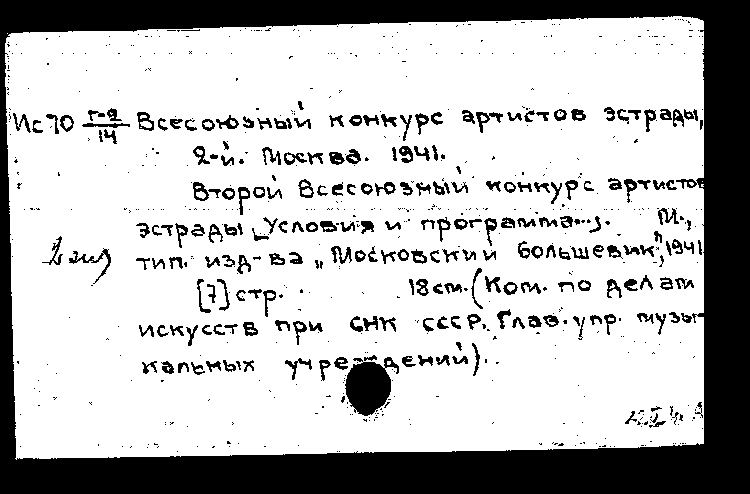 Ис70 г-9/14 Всесоюзный конкурс артистов эстрады,
2-й. Москва. 1941.
Второй Всесоюзный конкурс артистов
эстрады [Условия и программа...]. М.,
тип. изд-ва „Московский большевик", 1941
2 экз
[7] стр. 18 см. (Ком. по делам
искусств при СНК СССР. Глав. упр. музы-
кальных учреждений).